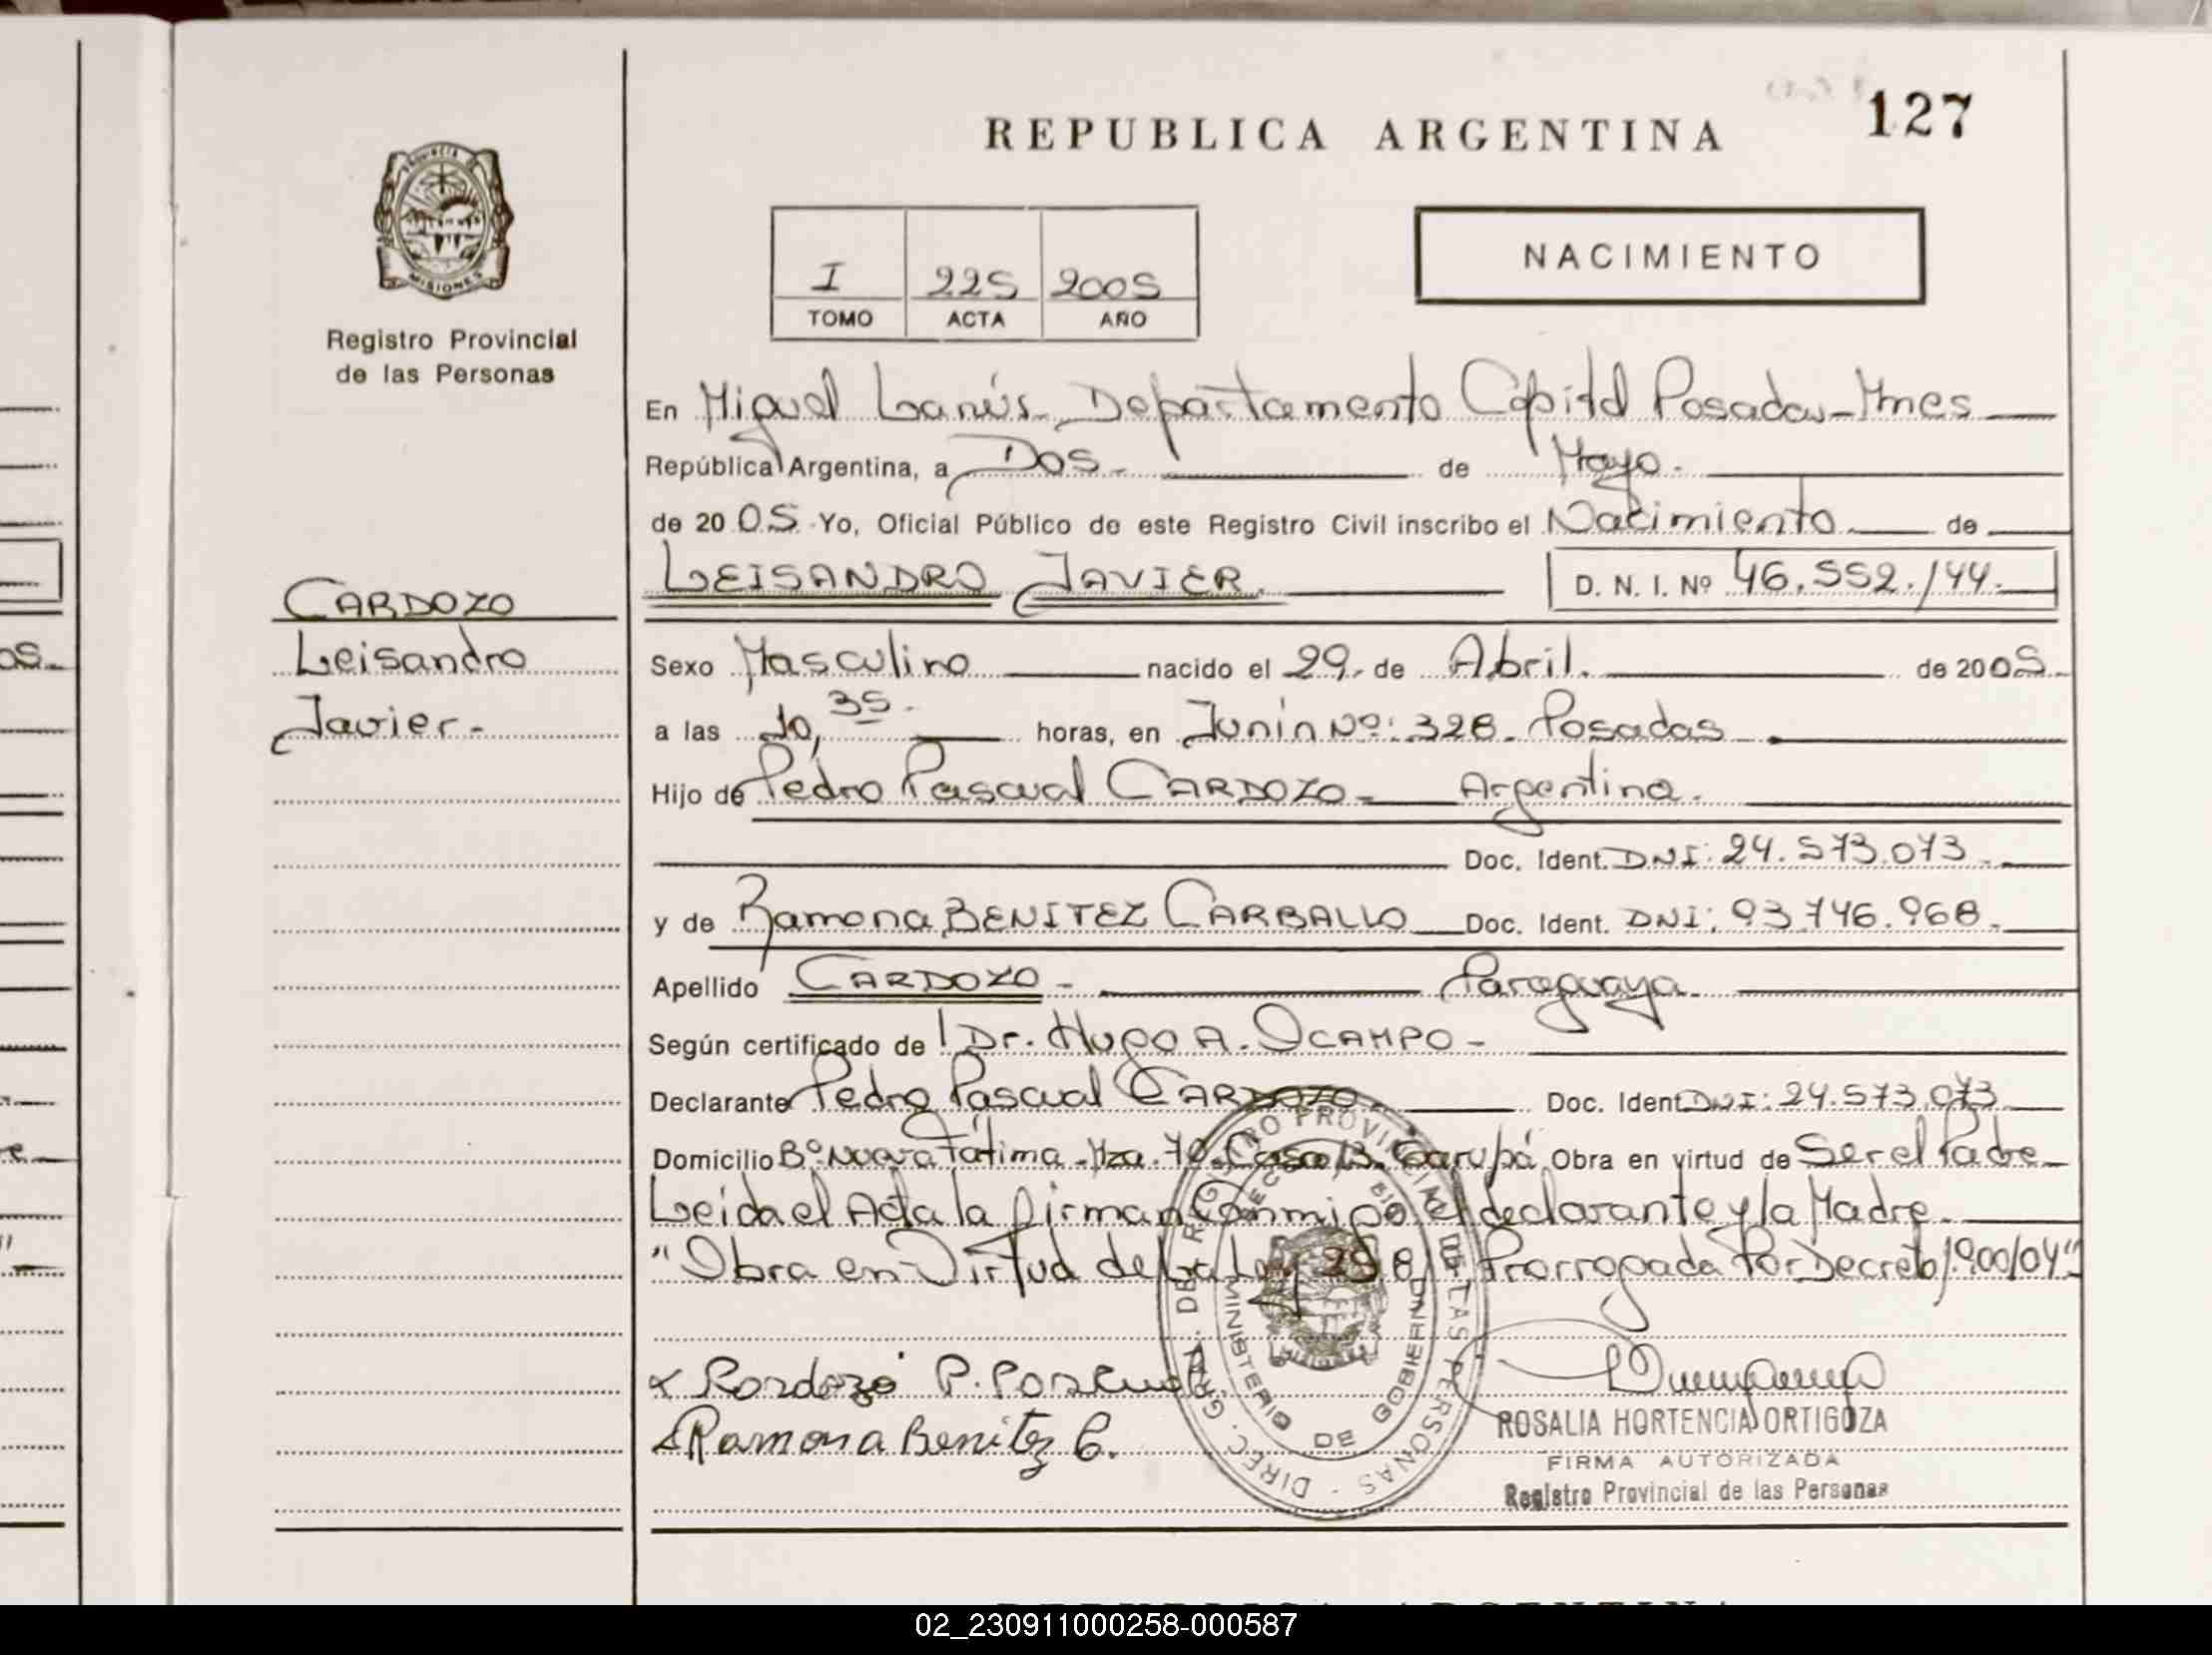 127
REPUBLICA ARGENTINA
PROVINCIA DE MISIONES
Registro Provincial
de las Personas
NACIMIENTO
I 225 2005
TOMO ACTA AÑO
En Miguel Lanús - Departamento Capital Posadas - Mnes
República Argentina, a Dos - de Mayo -
de 2005 Yo, Oficial Público de este Registro Civil inscribo el Nacimiento de
LEISANDRO JAVIER. D. N. I. Nº 46.552.144.-
CARDOZO
Leisandro
Javier -
Sexo Masculino nacido el 29 - de Abril. de 2005 -
a las 10,35 - horas, en Junín Nº: 328 - Posadas -
Hijo de Pedro Pascual CARDOZO - Argentina.
Doc. Ident. DNI: 24.573.073 -
y de Ramona BENITEZ CARBALLO Doc. Ident. DNI: 93.746.968 -
Apellido CARDOZO - Paraguaya -
Según certificado de Dr. Hugo A. OCAMPO -
Declarante Pedro Pascual CARDOZO - Doc. Ident DNI: 24.573.073
Domicilio Bº Nueva Fátima - Mza. 70 - Casa 13 - Garupá Obra en virtud de Ser el Padre -
Leida el Acta la firman Conmigo el declarante y la Madre -
"Obra en Virtud de la Ley 25.819 Prorrogada Por Decreto 1.900/04"
Cardozo P. Pascual
Ramona Benitez C.
DIREC. GRAL. DEL REGISTRO PROVINCIAL DE LAS PERSONAS
MINISTERIO DE GOBIERNO
ROSALIA HORTENCIA ORTIGOZA
FIRMA AUTORIZADA
Registro Provincial de las Personas
02_230911000258-000587